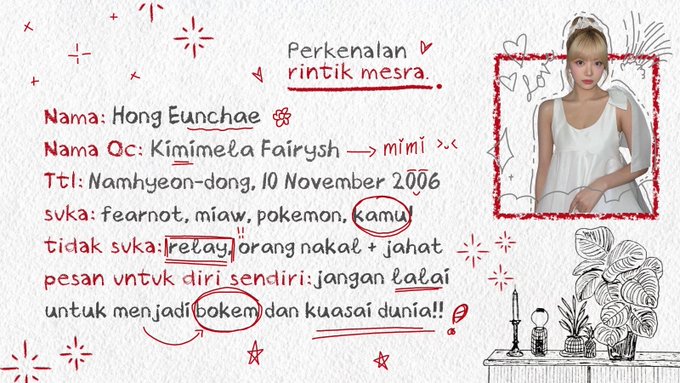 Perkenalan
rintik mesra.
Nama: Hong Eunchae
Nama Oc: Kimimela Fairysh → mimi >⩊<
Ttl: Namhyeon-dong, 10 November 2006
suka: fearnot, miaw, pokemon, kamu!
tidak suka: relay, !! orang nakal + jahat
pesan untuk diri sendiri: jangan lalai
untuk menjadi bokem dan kuasai dunia!!